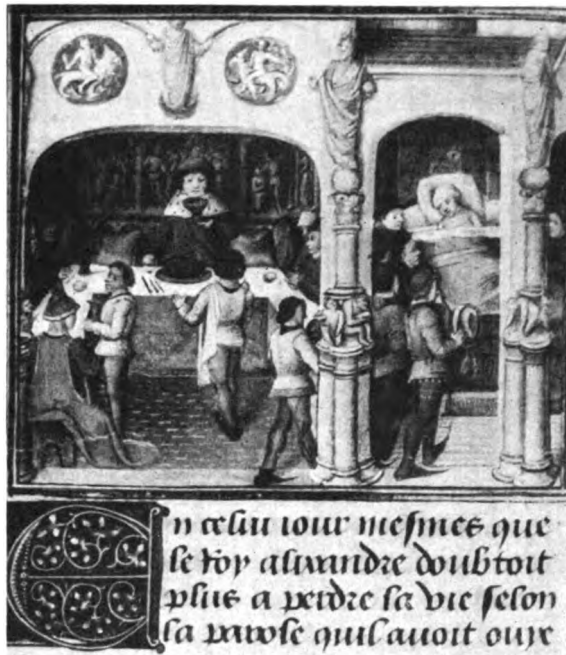 En celui iour mesmes que
le Roy alixandre doubtoit
plus a perdre sa vie selon
sa parole quil auoit ouye